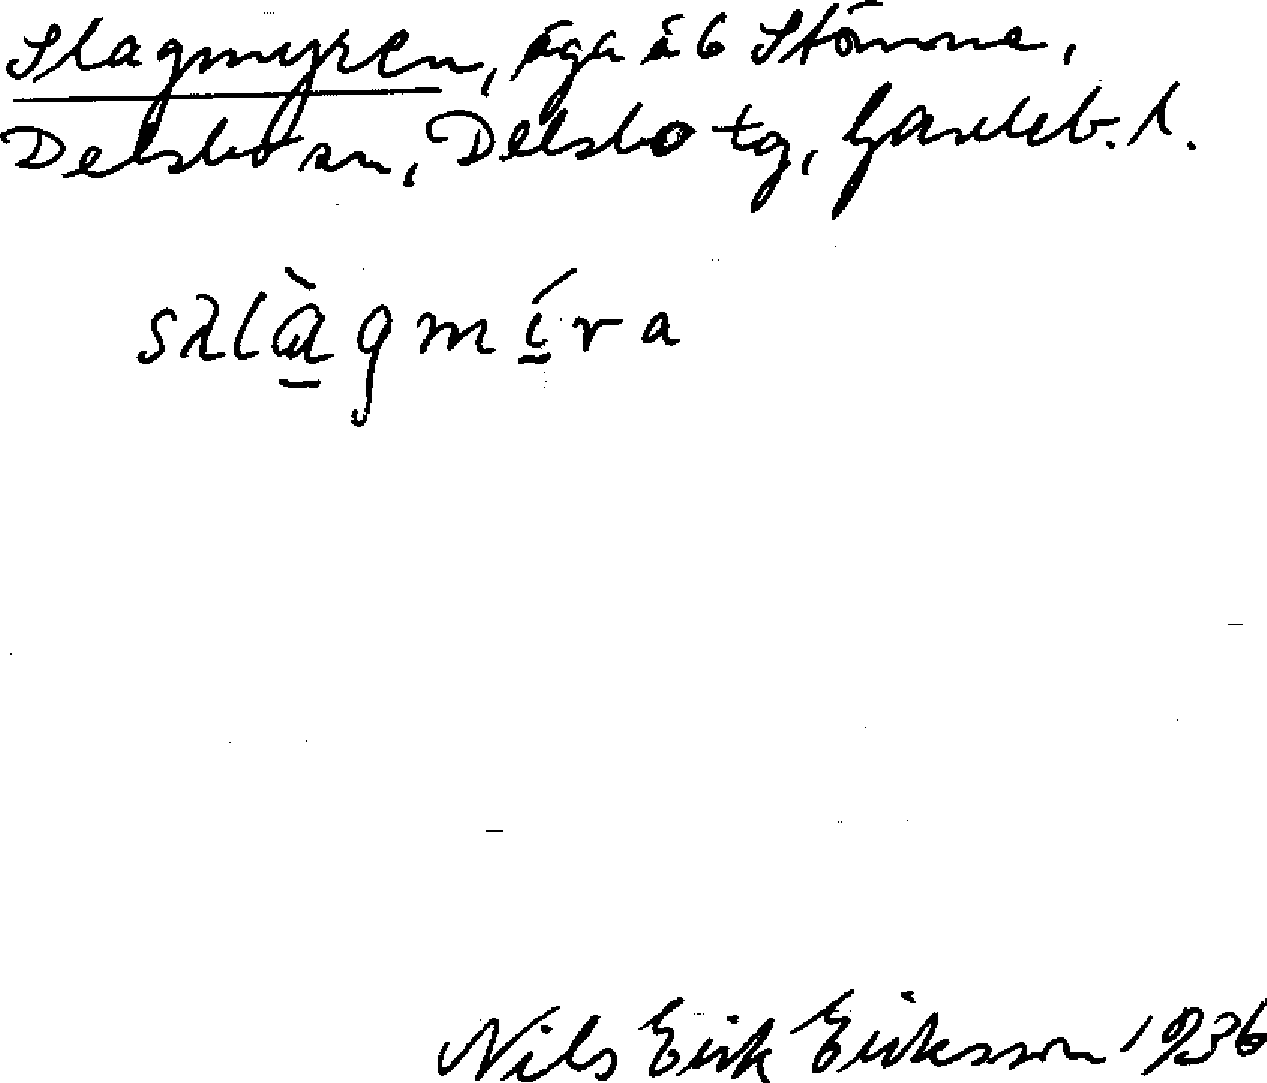 Slagmyren, äga å 6 Stömne,
Delsbo sn, Delsbo tg, Gävleb. l.
sλlàgmíra
Nils Erik Eriksson 1936